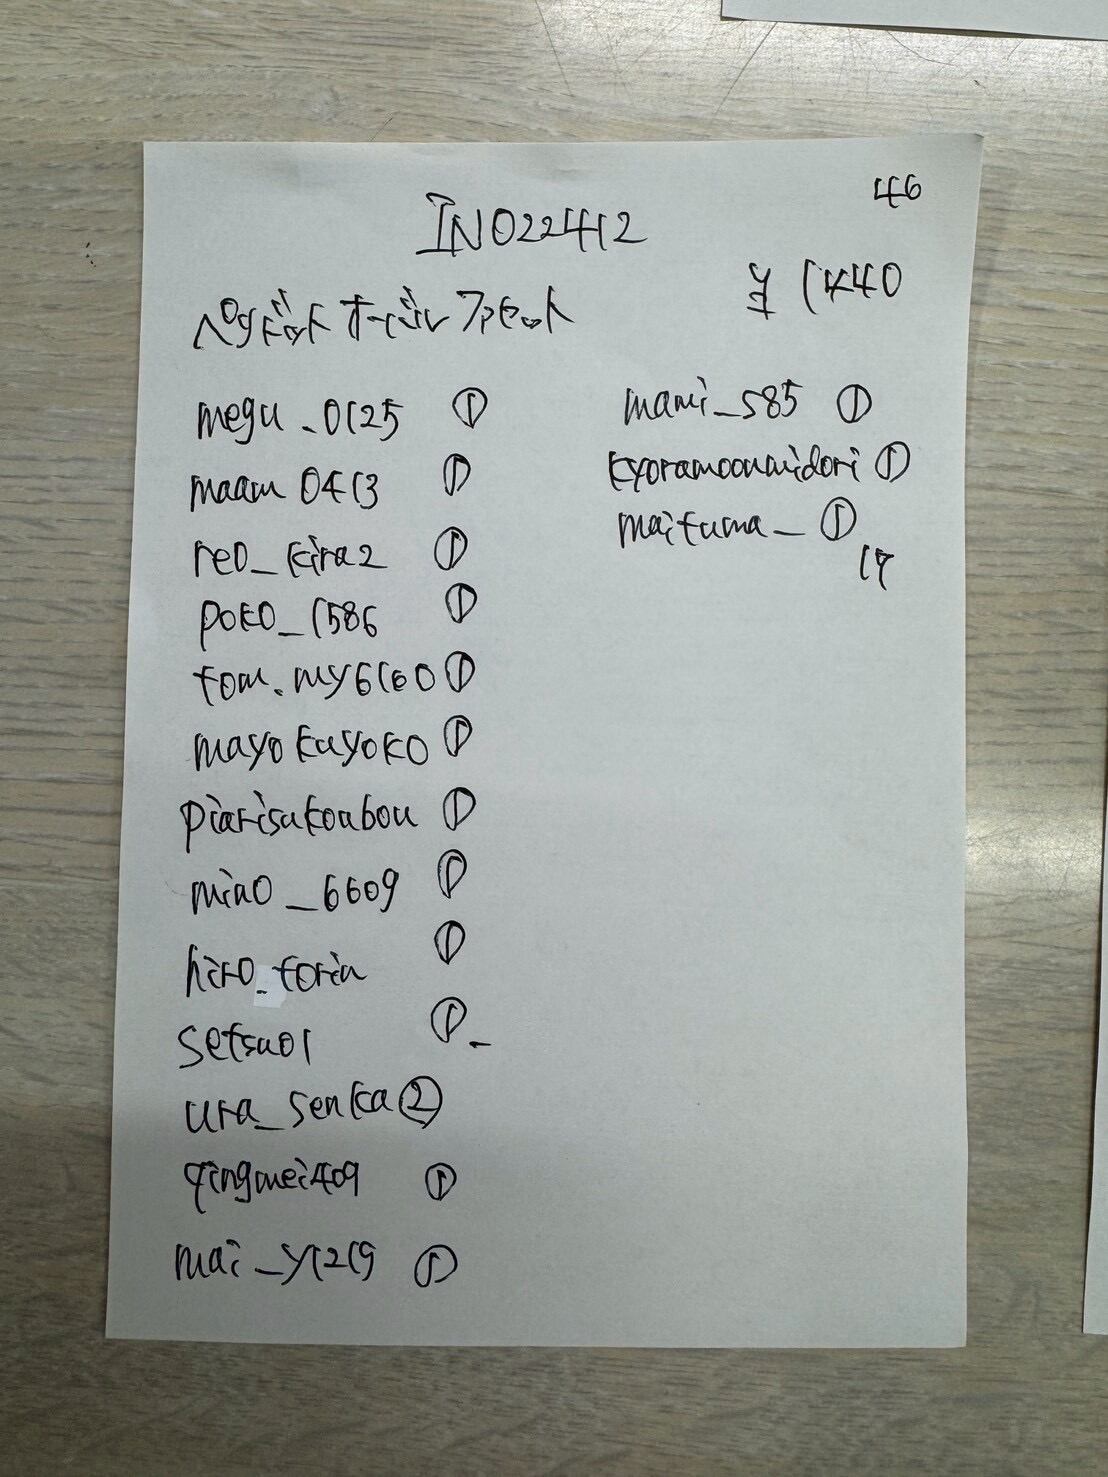 46
INO22412
¥ 1440
ペリドット オーバル ファセット
megu_0125 ①
maam 0413 ①
reo_kira2 ①
poko_1586 ①
tom.my6160 ①
mayokayoko ①
piarisukoubou ①
mino_6609 ①
hiro_torin ①
setsuo1 ①
ura_senka ②
qingmei409 ①
mai_y1219 ①
mami_585 ①
kyoramoonmidori ①
maituma_ ①
17